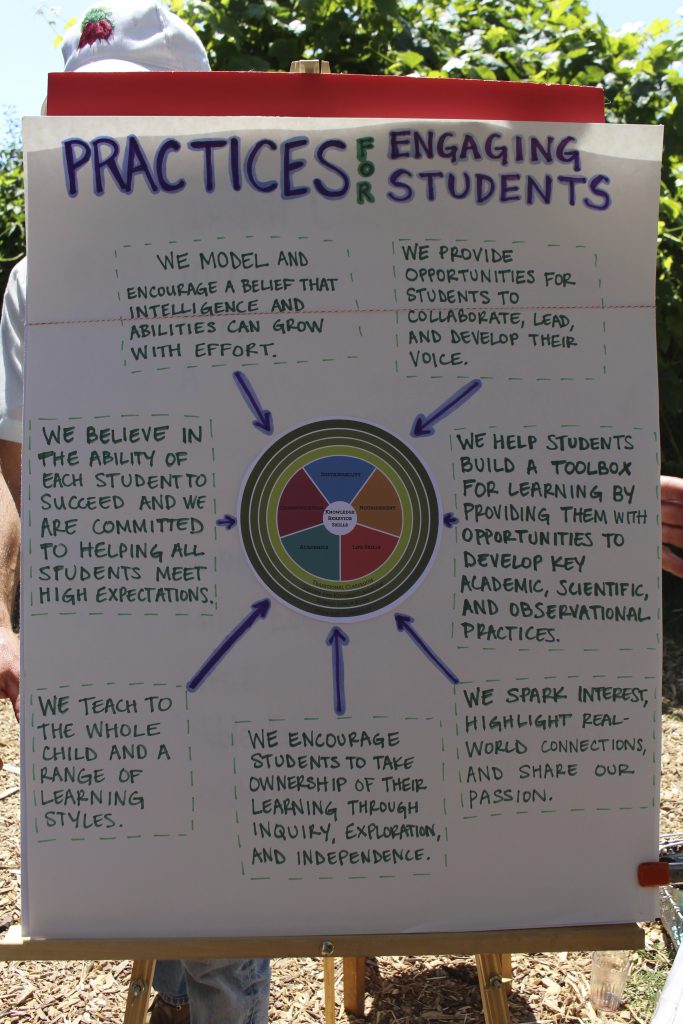 PRACTICES FOR ENGAGING
STUDENTS
WE MODEL AND
ENCOURAGE A BELIEF THAT
INTELLIGENCE AND
ABILITIES CAN GROW
WITH EFFORT.
WE PROVIDE
OPPORTUNITIES FOR
STUDENTS TO
COLLABORATE, LEAD,
AND DEVELOP THEIR
VOICE.
WE BELIEVE IN
THE ABILITY OF
EACH STUDENT TO
SUCCEED AND WE
ARE COMMITTED
TO HELPING ALL
STUDENTS MEET
HIGH EXPECTATIONS.
SUSTAINABILITY
NOURISHMENT
KNOWLEDGE
BEHAVIOR
SKILLS
ACADEMICS
LIFE SKILLS
TRADITIONAL CLASSROOM
WE HELP STUDENTS
BUILD A TOOLBOX
FOR LEARNING BY
PROVIDING THEM WITH
OPPORTUNITIES TO
DEVELOP KEY
ACADEMIC, SCIENTIFIC,
AND OBSERVATIONAL
PRACTICES.
WE TEACH TO
THE WHOLE
CHILD AND A
RANGE OF
LEARNING
STYLES.
WE ENCOURAGE
STUDENTS TO TAKE
OWNERSHIP OF THEIR
LEARNING THROUGH
INQUIRY, EXPLORATION,
AND INDEPENDENCE.
WE SPARK INTEREST,
HIGHLIGHT REAL-
WORLD CONNECTIONS,
AND SHARE OUR
PASSION.